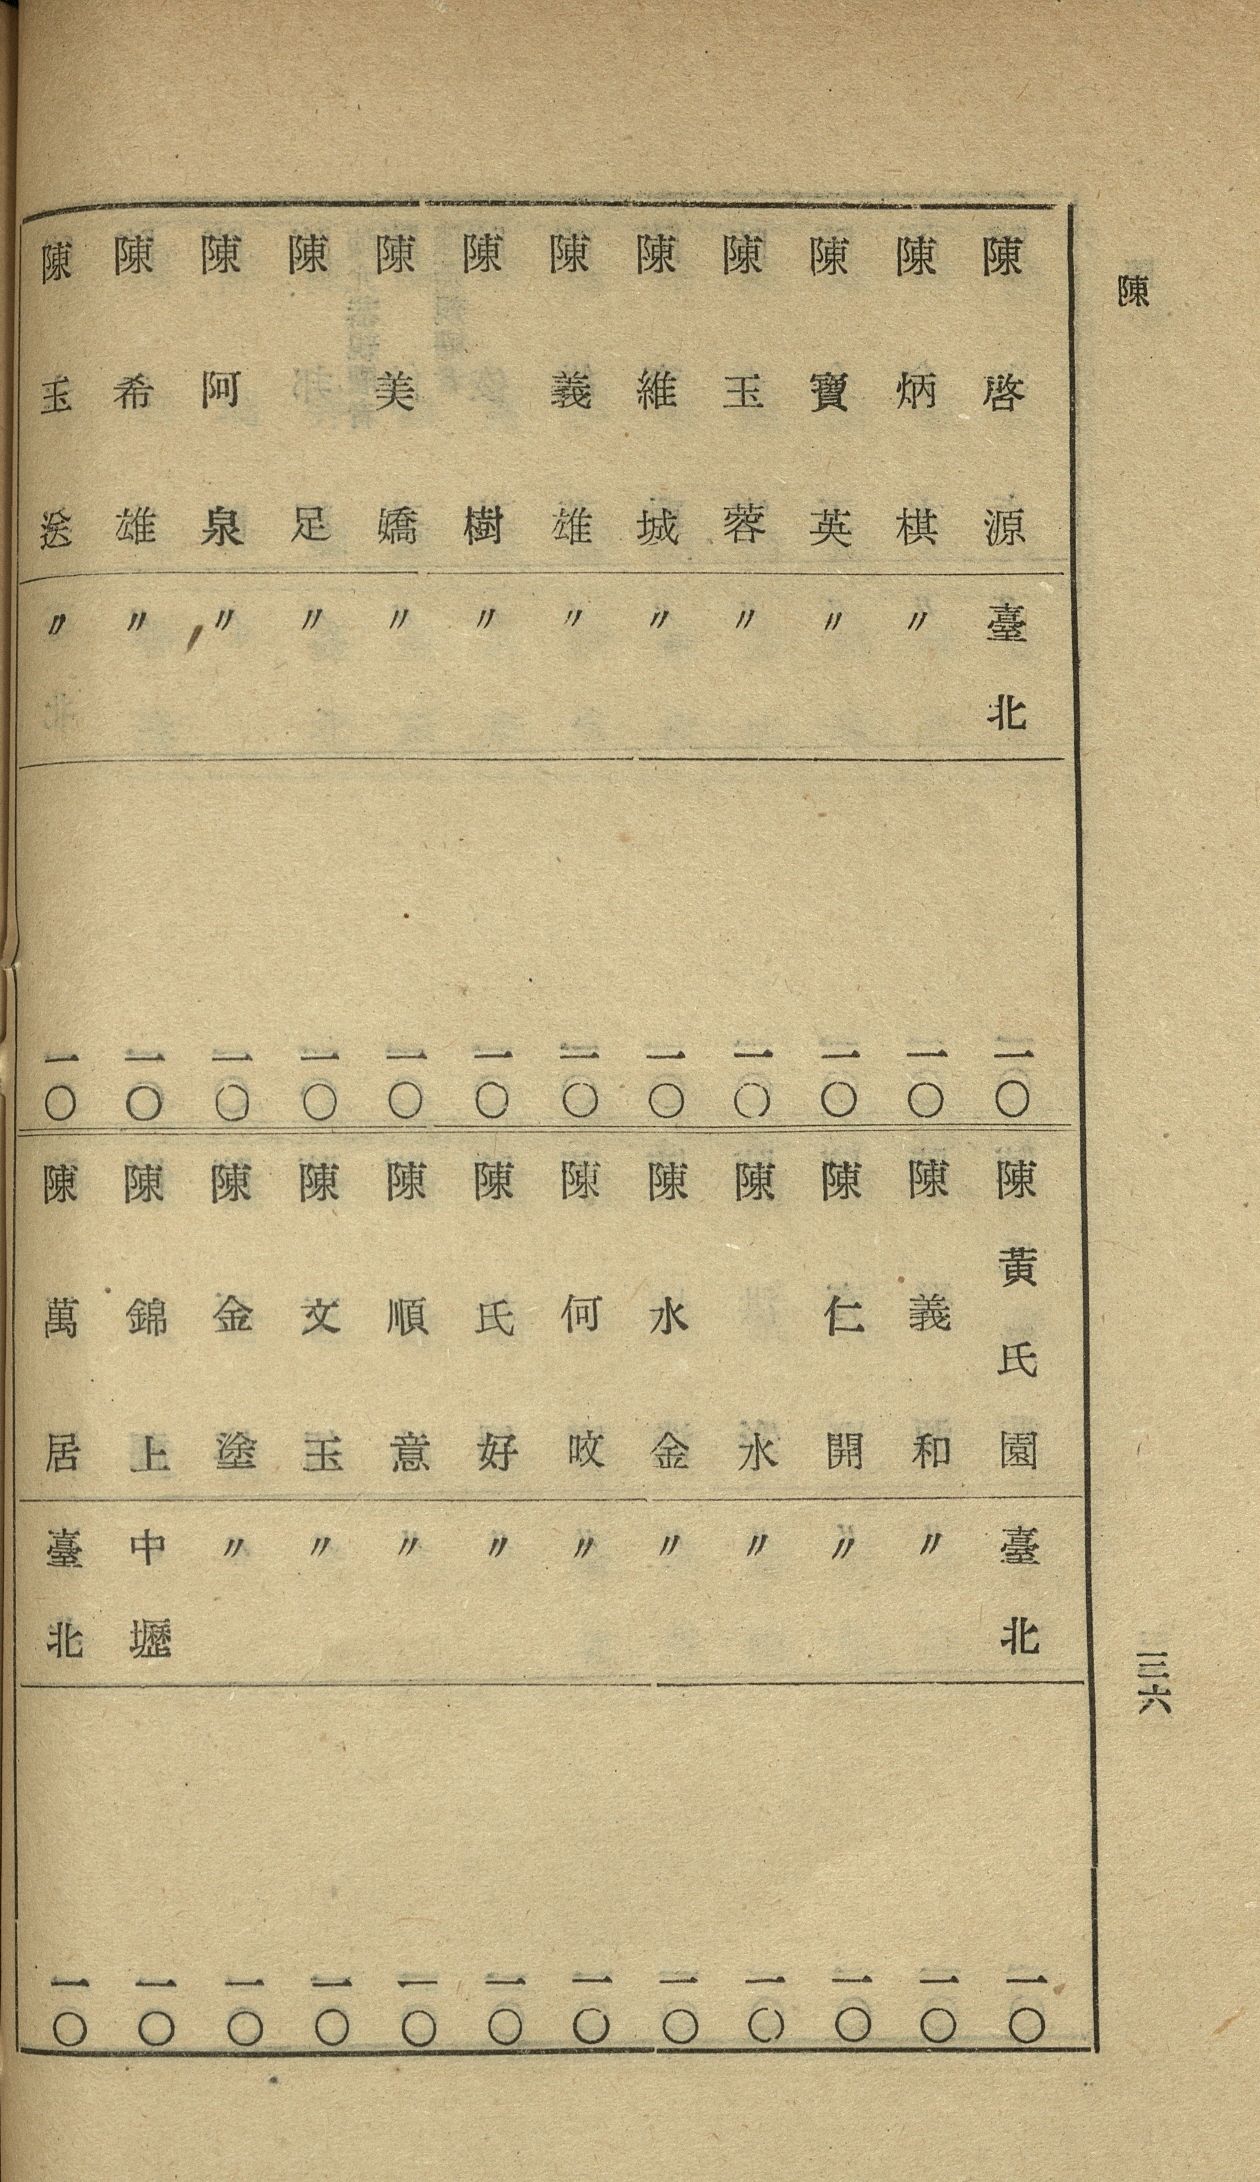 陳
三六
陳啓源 臺北 一〇
陳炳棋 〃 一〇
陳寶英 〃 一〇
陳玉蓉 〃 一〇
陳維城 〃 一〇
陳義雄 〃 一〇
陳樹 〃 一〇
陳美嬌 〃 一〇
陳足 〃 一〇
陳阿泉 〃 一〇
陳希雄 〃 一〇
陳玉送 〃 一〇
陳黃氏園 臺北 一〇
陳義和 〃 一〇
陳仁開 〃 一〇
陳水 〃 一〇
陳水金 〃 一〇
陳何㕮 〃 一〇
陳氏好 〃 一〇
陳順意 〃 一〇
陳文玉 〃 一〇
陳金塗 〃 一〇
陳錦上 中壢 一〇
陳萬居 臺北 一〇